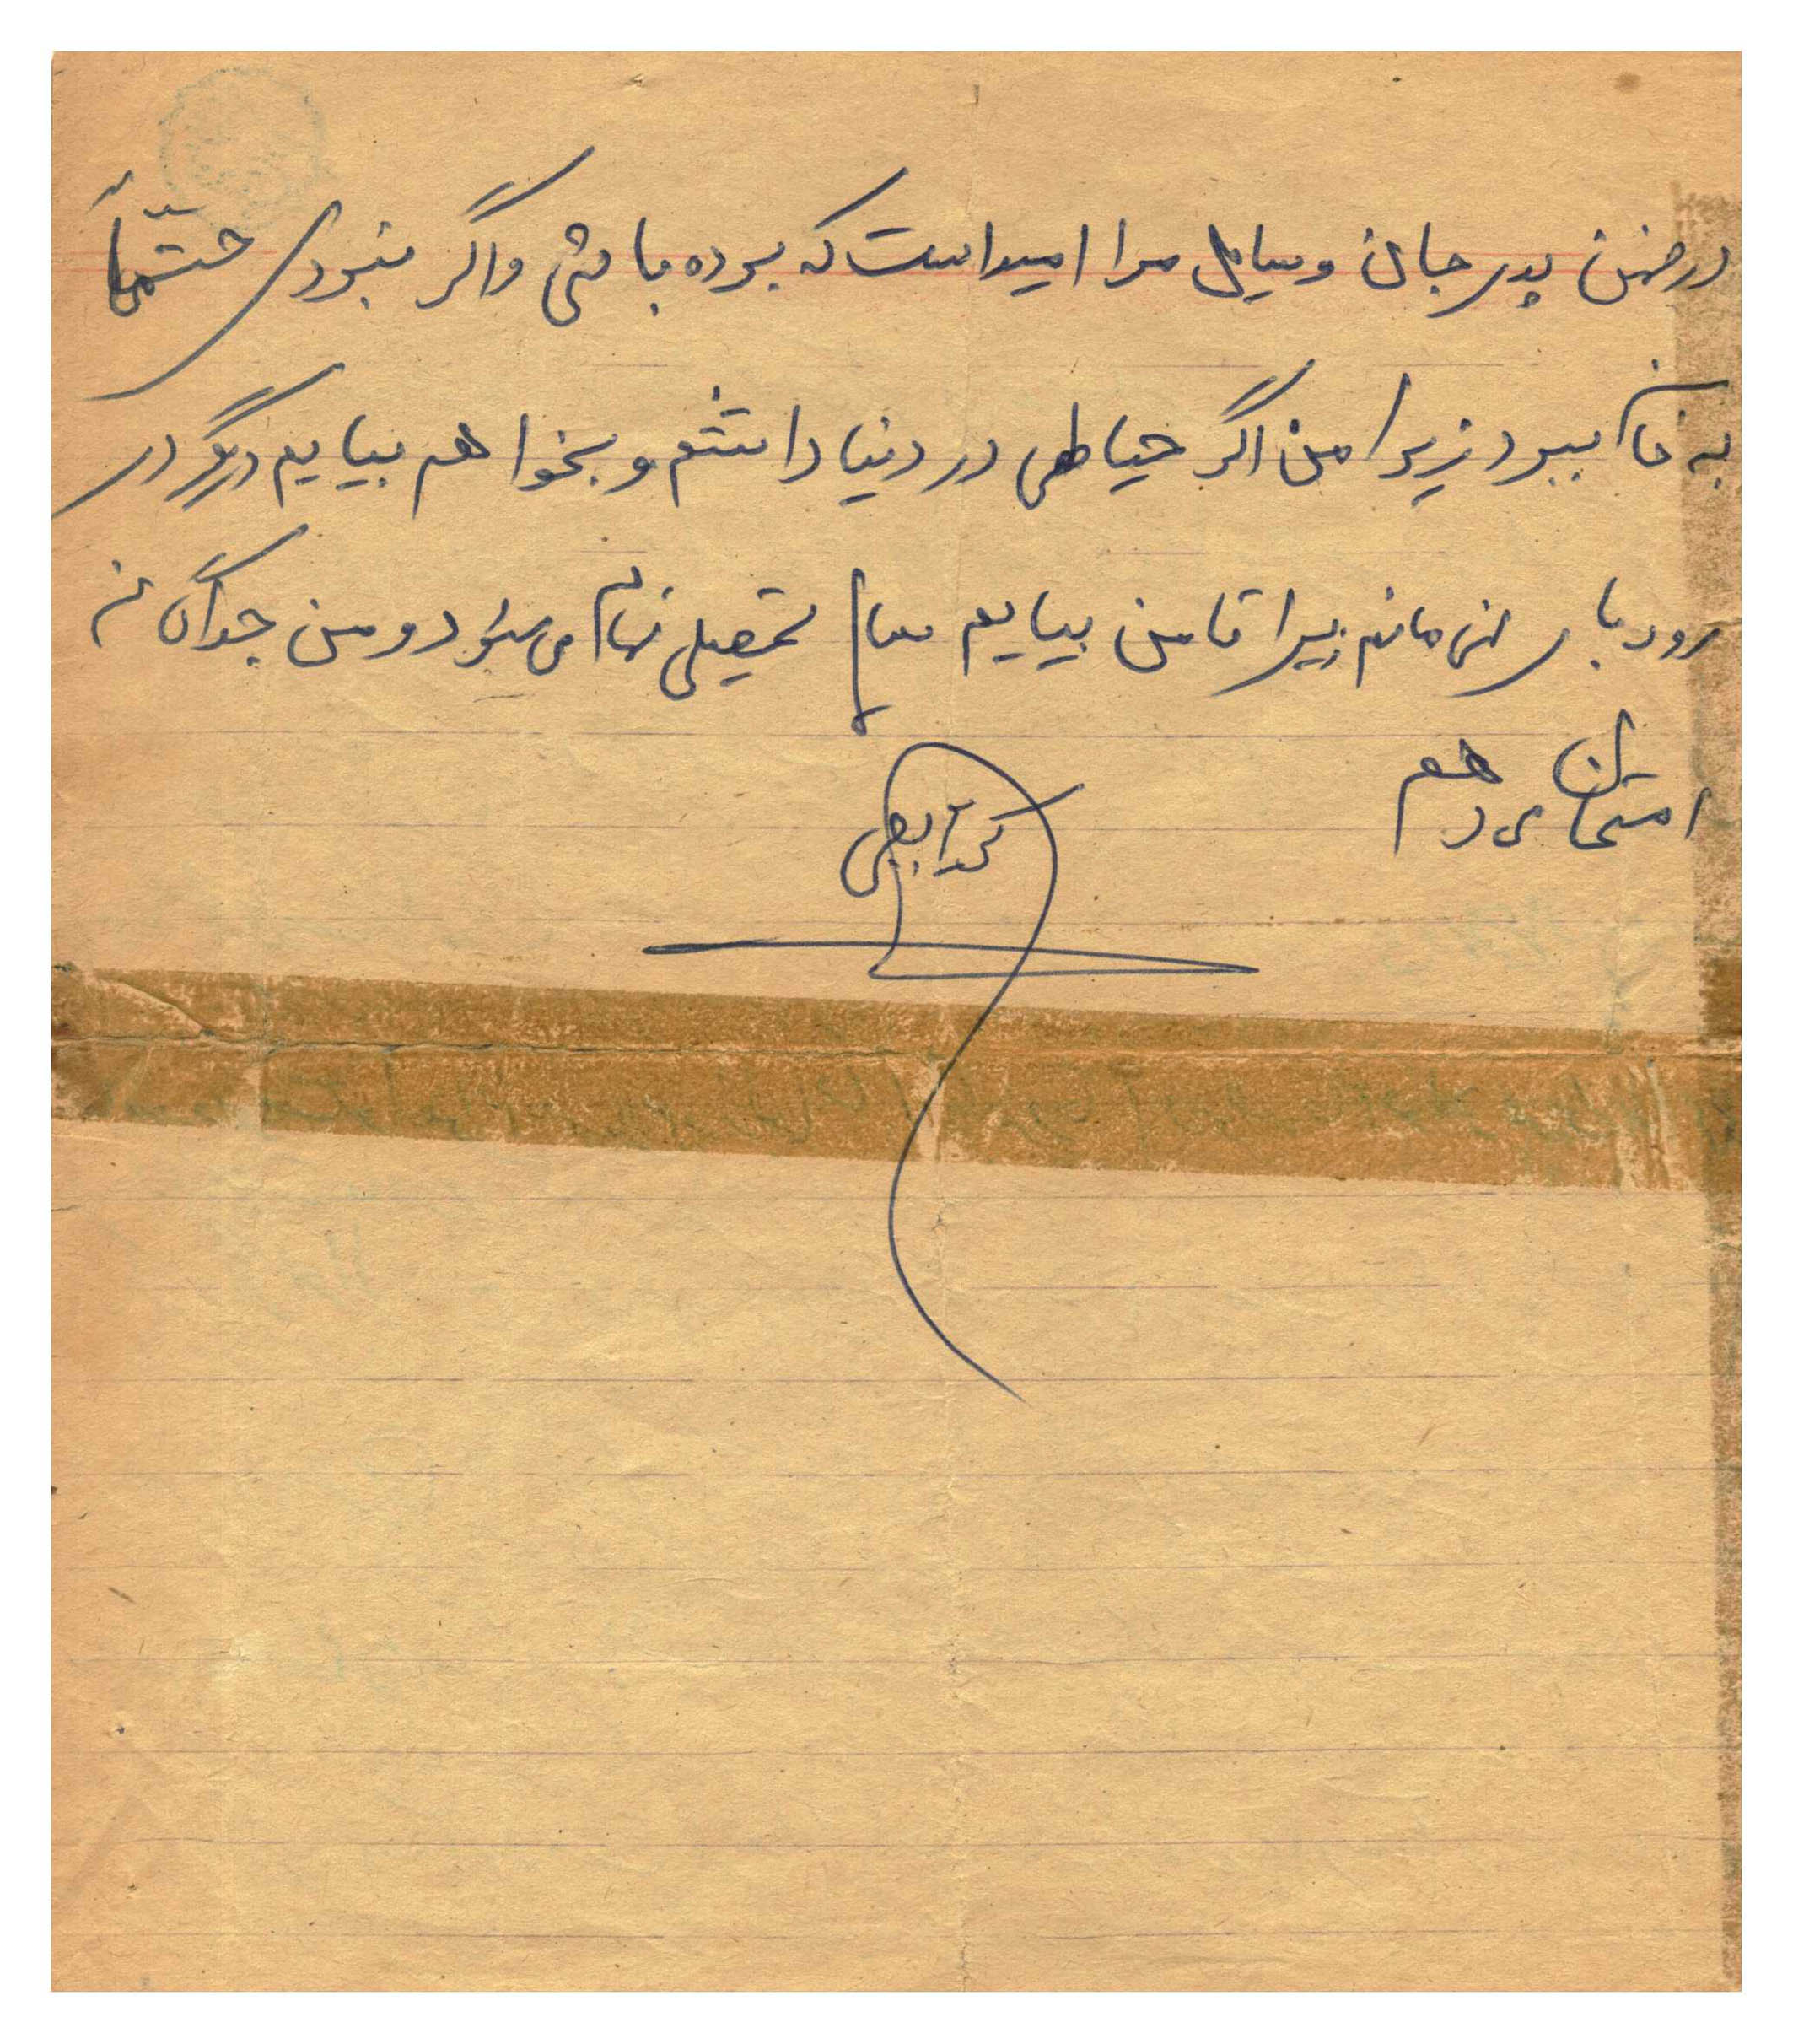 در ضمن پدر جان وسایل مرا امید است که برده باشی واگر نبردی حتماً
به خانه ببرد زیرا من اگر حیاطی در دنیا داشتم و بخواهم بیایم دیگر در
رودبار نمی مانم زیرا تا من بیایم سال تحصیلی تمام می شود و من جداگانه
امتحان می دهم